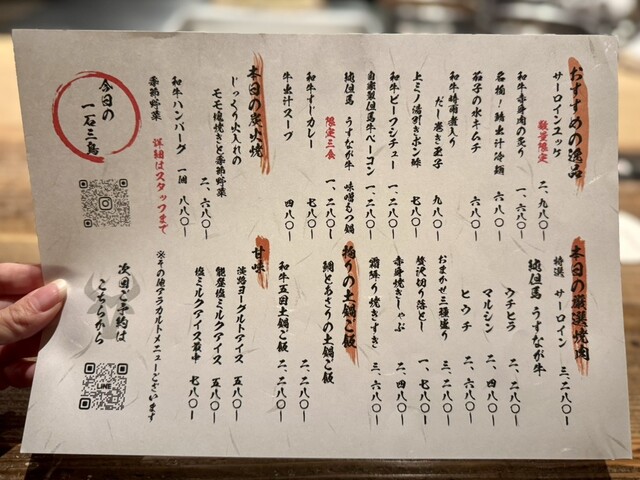 おすすめの逸品
サーロインユッケ 数量限定 二、九八〇ー
和牛赤身肉の炙り 一、六八〇ー
名物！鯖出汁冷麺 一、六八〇ー
茄子の水キムチ 六八〇ー
和牛時雨煮入り
だし巻き玉子 九八〇ー
上ミノ湯引きポン酢 七八〇ー
和牛ビーフシチュー 一、二八〇ー
自家製但馬牛ベーコン 一、二八〇ー
純但馬 うすなが牛 味噌もつ鍋 一、二八〇ー
和牛すじカレー 限定三食 七八〇ー
牛出汁スープ 四八〇ー
本日の炭火焼
じっくり火入れの
モモ塊焼きと季節野菜 二、六八〇ー
和牛ハンバーグ 一個 八八〇ー
季節野菜 詳細はスタッフまで
今日の
一石三鳥
本日の厳選焼肉
特選 サーロイン 三、二八〇ー
純但馬 うすなが牛
ウチヒラ 二、二八〇ー
マルシン 二、四八〇ー
ヒウチ 二、六八〇ー
おまかせ三種盛り 二、二八〇ー
贅沢切り落とし 一、七八〇ー
赤身焼きしゃぶ 二、四八〇ー
霜降り焼きすき 三、六八〇ー
拘りの土鍋ご飯
鯛とあさりの土鍋ご飯 二、二八〇ー
和牛五目土鍋ご飯 二、二八〇ー
甘味
淡路ヨーグルトアイス 五八〇ー
能登塩ミルクアイス 五八〇ー
塩ミルクアイス最中 七八〇ー
※その他アラカルトメニューございます
次回ご予約は
こちらから
LINE